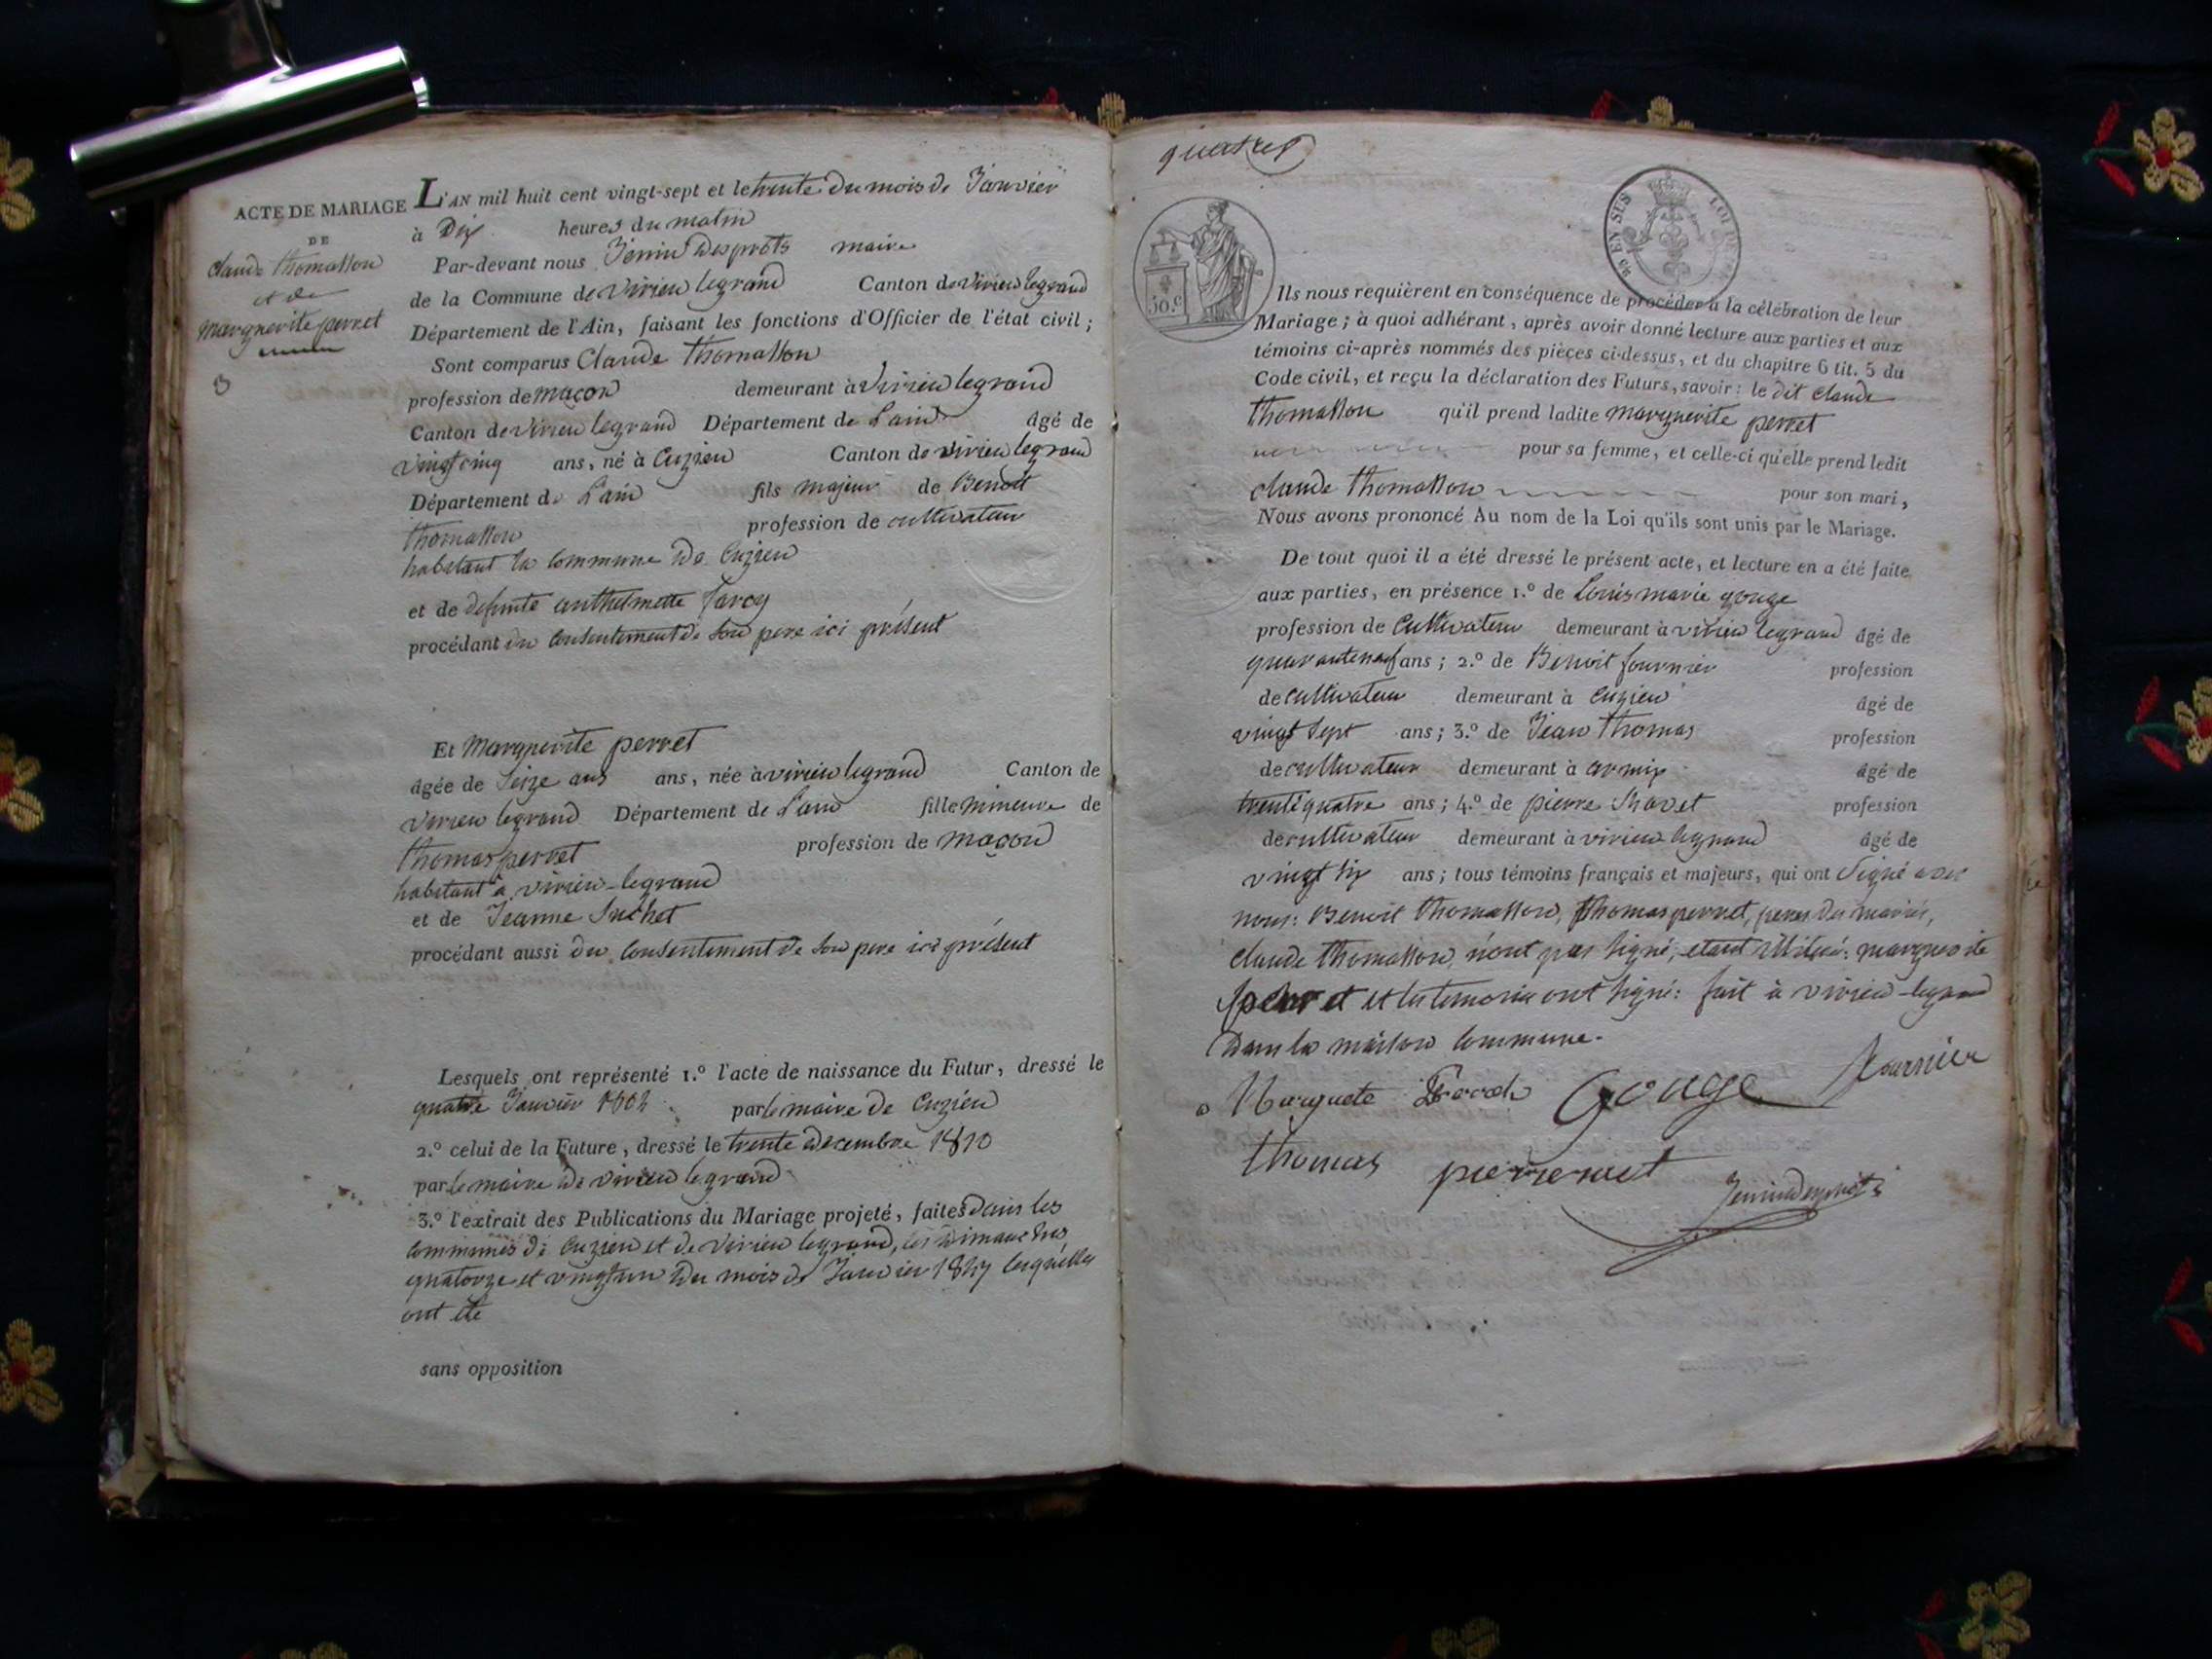 ACTE DE MARIAGE
DE
Claude thomasson
et de
marguerite perret
3
L'AN mil huit cent vingt-sept et le trente du mois de Janvier
à Dix heures du matin
Par-devant nous Jenin Desprots maire
de la Commune de Virieu legrand Canton de Virieu legrand
Département de l'Ain, faisant les fonctions d'Officier de l'état civil ;
Sont comparus Claude thomasson
profession de maçon demeurant à Virieu legrand
Canton de Virieu legrand Département de Lain âgé de
vingt cinq ans, né à Cuzieu Canton de virieu legrand
Département de Lain fils majeur de Benoit
thomasson profession de cultivateur
habitant la commune de Cuzieu
et de defunte anthelmette
procédant du Consentement de son pere ici présent
Et Marguerite perret
âgée de Seize ans ans, née à virieu legrand Canton de
virieu legrand Département de Lain fille mineure de
thomas perret profession de maçon
habitant à virieu-legrand
et de Jeanne Suchet
procédant aussi du Consentement de son pere ici présent
Lesquels ont représenté 1.º l'acte de naissance du Futur, dressé le
quatre Janvier 1802 par le maire de Cuzieu
2.º celui de la Future, dressé le trente decembre 1810
par le maire de virieu legrand
3.º l'extrait des Publications du Mariage projeté, faites dans les
communes de Cuzieu et de Virieu legrand, les dimanches
quatorze et vingt un du mois de Janvier 1827 lesquelles
ont ete
sans opposition
quatre
50.c
EN SUS
LOI DE
Ils nous requièrent en conséquence de procéder à la célébration de leur
Mariage ; à quoi adhérant, après avoir donné lecture aux parties et aux
témoins ci-après nommés des pièces ci-dessus, et du chapitre 6 tit. 5 du
Code civil, et reçu la déclaration des Futurs, savoir : le dit Claude
thomasson qu'il prend ladite marguerite perret
pour sa femme, et celle-ci qu'elle prend ledit
claude thomasson pour son mari,
Nous avons prononcé Au nom de la Loi qu'ils sont unis par le Mariage.
De tout quoi il a été dressé le présent acte, et lecture en a été faite
aux parties, en présence 1.º de Louis marie gouge
profession de Cultivateur demeurant à virieu legrand âgé de
quarante neuf ans ; 2.º de Benoit fournier profession
de cultivateur demeurant à Cuzieu âgé de
vingt Sept ans ; 3.º de Jean thomas profession
de cultivateur demeurant à armix âgé de
trente quatre ans ; 4.º de pierre profession
de cultivateur demeurant à virieu legrand âgé de
vingt six ans ; tous témoins français et majeurs, qui ont Signé avec
nous : Benoit thomasson, thomas perret, peres des mariés,
claude thomasson, n'ont pas signé, etant : marguerite
perret et les temoins ont signé : fait à virieu-legrand
dans la maison commune.
Gouge fournier
thomas